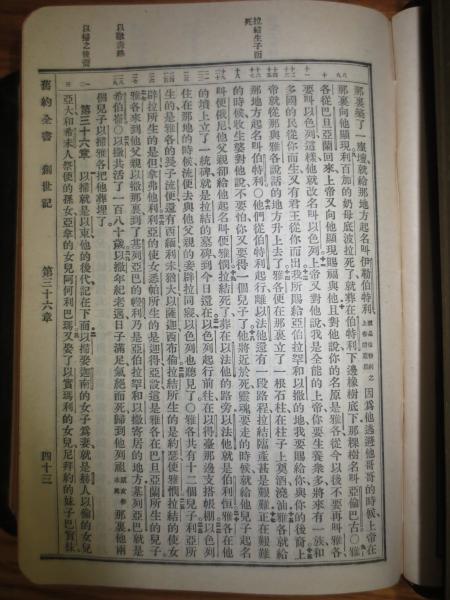 那裏築了一座壇就給那地方起名叫伊勒伯特利就是伯特利之上帝的意思因爲他逃避他哥哥的時候上帝在
那裏向他顯現利百加的奶母底波拉死了就葬在伯特利下邊橡樹底下那棵樹名叫亞倫巴古○雅
各從巴旦亞蘭回來上帝又向他顯現賜福與他且對他說你的名原是雅各從今以後不要再叫雅各
要叫以色列這樣他就改名叫以色列上帝又對他說我是全能的上帝你要生養衆多將來有一族和
多國的民從你而生又有君王從你而出我所賜給亞伯拉罕和以撒的地我要賜給你與你的後裔上
帝就從那與雅各說話的地方升上去了雅各便在那裏立了一根石柱在柱子上奠酒澆油雅各就給
那地方起名叫伯特利○他們從伯特利起行離以法他還有一段路程拉結臨產甚是艱難正在艱難
拉結生子而死
的時候收生婆對他說不要怕你又要得一個兒子了他將近於死靈魂要走的時候就給他兒子起名
叫便俄尼他父親卻給他起名叫便雅憫拉結死了葬在以法他的路旁以法他就是伯利恒雅各在他
的墳上立了一統碑就是拉結的墓碑到今日還在以色列起行前往在以得臺那邊支搭帳棚以色列
住在那地的時候流便去與他父親的妾辟拉同寢以色列也聽見了○雅各共有十二個兒子利亞所
生的是雅各的長子流便還有西緬利未猶大以薩迦西布倫拉結所生的是約瑟便雅憫拉結的使女
辟拉所生的是但拿弗他利利亞的使女悉帕所生的是迦得亞設這是雅各在巴旦亞蘭所生的兒子
雅各來到他父親以撒那裏到了基列亞巴的幔利乃是亞伯拉罕和以撒寄居的地方基列亞巴就是
以撒壽終
希伯崙○以撒共活了一百八十歲以撒年紀老邁日子滿足氣絕而死歸到他列祖原文作本民那裏他兩
個兒子以掃雅各把他葬埋了
以掃之後裔
第三十六章 以掃就是以東他的後代記在下面以掃娶迦南的女子爲妻就是赫人以倫的女兒
亞大和希未人祭便的孫女亞拿的女兒阿何利巴瑪又娶了以實瑪利的女兒尼拜約的妹子巴實抹
舊約全書 創世記 第三十六章 四十三